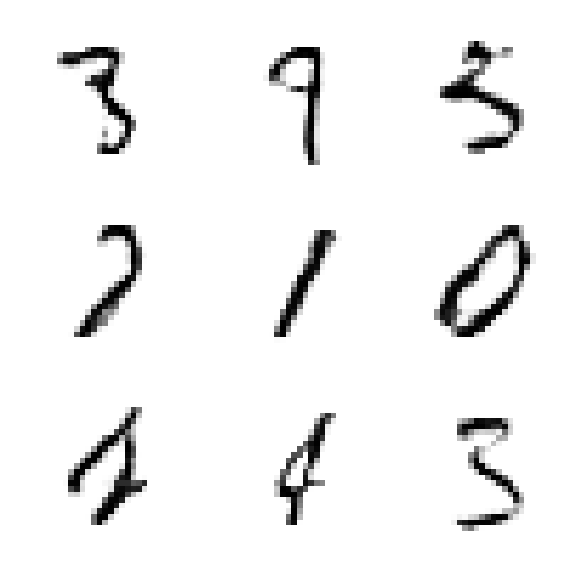 3 9 5
7 1 0
4 4 3